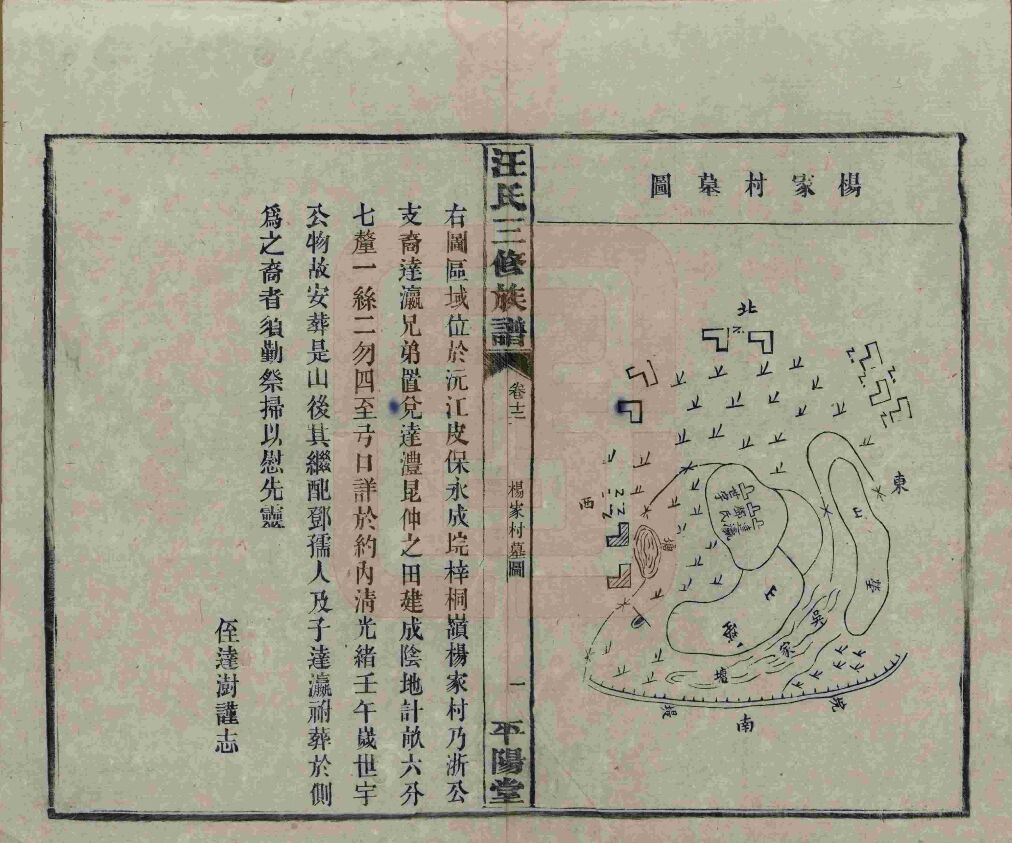 楊家村墓圖
北
東
西
南
達瀛
鄧氏
世宇
塘
吳家塘
堤
汪氏三修族譜
卷十二
楊家村墓圖
一
平陽堂
右圖區域位於沅江皮保永成垸梓桐嶺楊家村乃浙公
支裔達瀛兄弟置兌達澧昆仲之田建成陰地計畝六分
七釐一絲二勿四至弓口詳於約內清光緒壬午歲世宇
公物故安葬是山後其繼配鄧孺人及子達瀛祔葬於側
爲之裔者須勤祭掃以慰先靈
侄達澍謹志